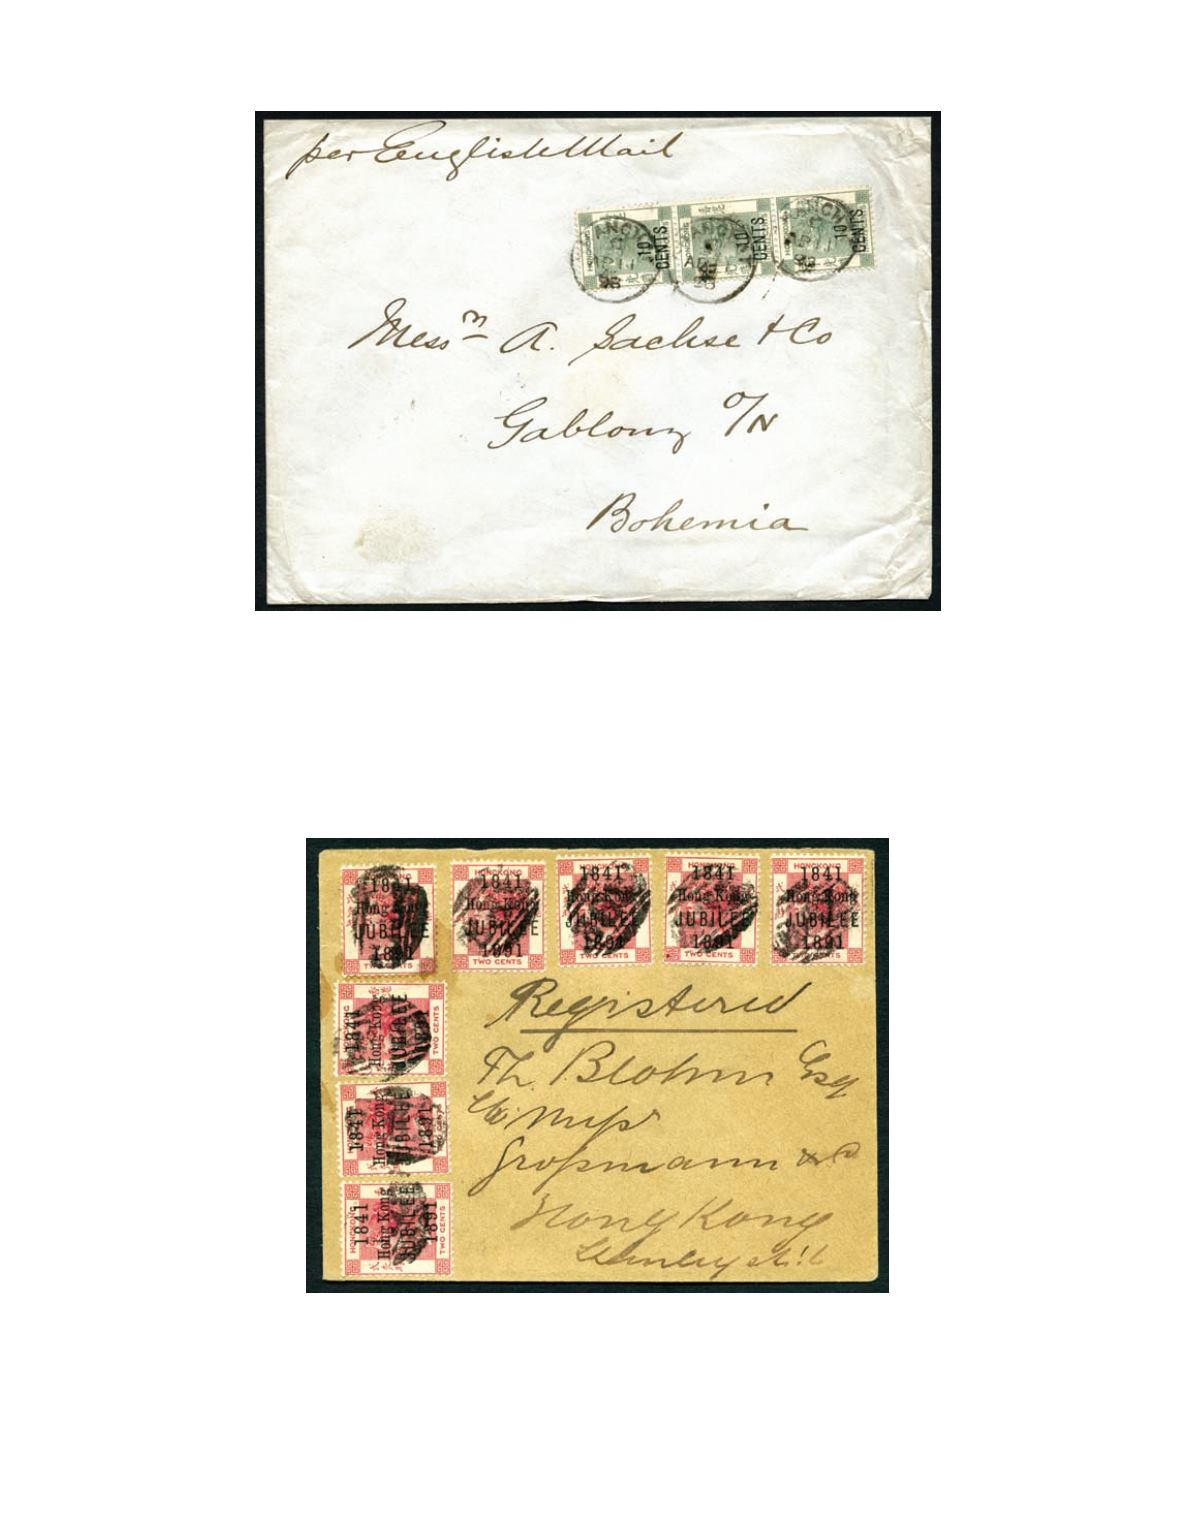 per English Mail
HONGKONG
10 CENTS
HONGKONG
10 CENTS
HONGKONG
10 CENTS
Mess rs A. Sachse & Co
Gablonz O/N
Bohemia
HONGKONG
1841
Hong Kong
JUBILEE
1891
TWO CENTS
HONGKONG
1841
Hong Kong
JUBILEE
1891
TWO CENTS
HONGKONG
1841
Hong Kong
JUBILEE
1891
TWO CENTS
HONGKONG
1841
Hong Kong
JUBILEE
1891
TWO CENTS
HONGKONG
1841
Hong Kong
JUBILEE
1891
TWO CENTS
HONGKONG
1841
Hong Kong
JUBILEE
1891
TWO CENTS
HONGKONG
1841
Hong Kong
JUBILEE
1891
TWO CENTS
HONGKONG
1841
Hong Kong
JUBILEE
1891
TWO CENTS
Registered
Th. Blohm Esq
Grossmann & Co
Hong Kong